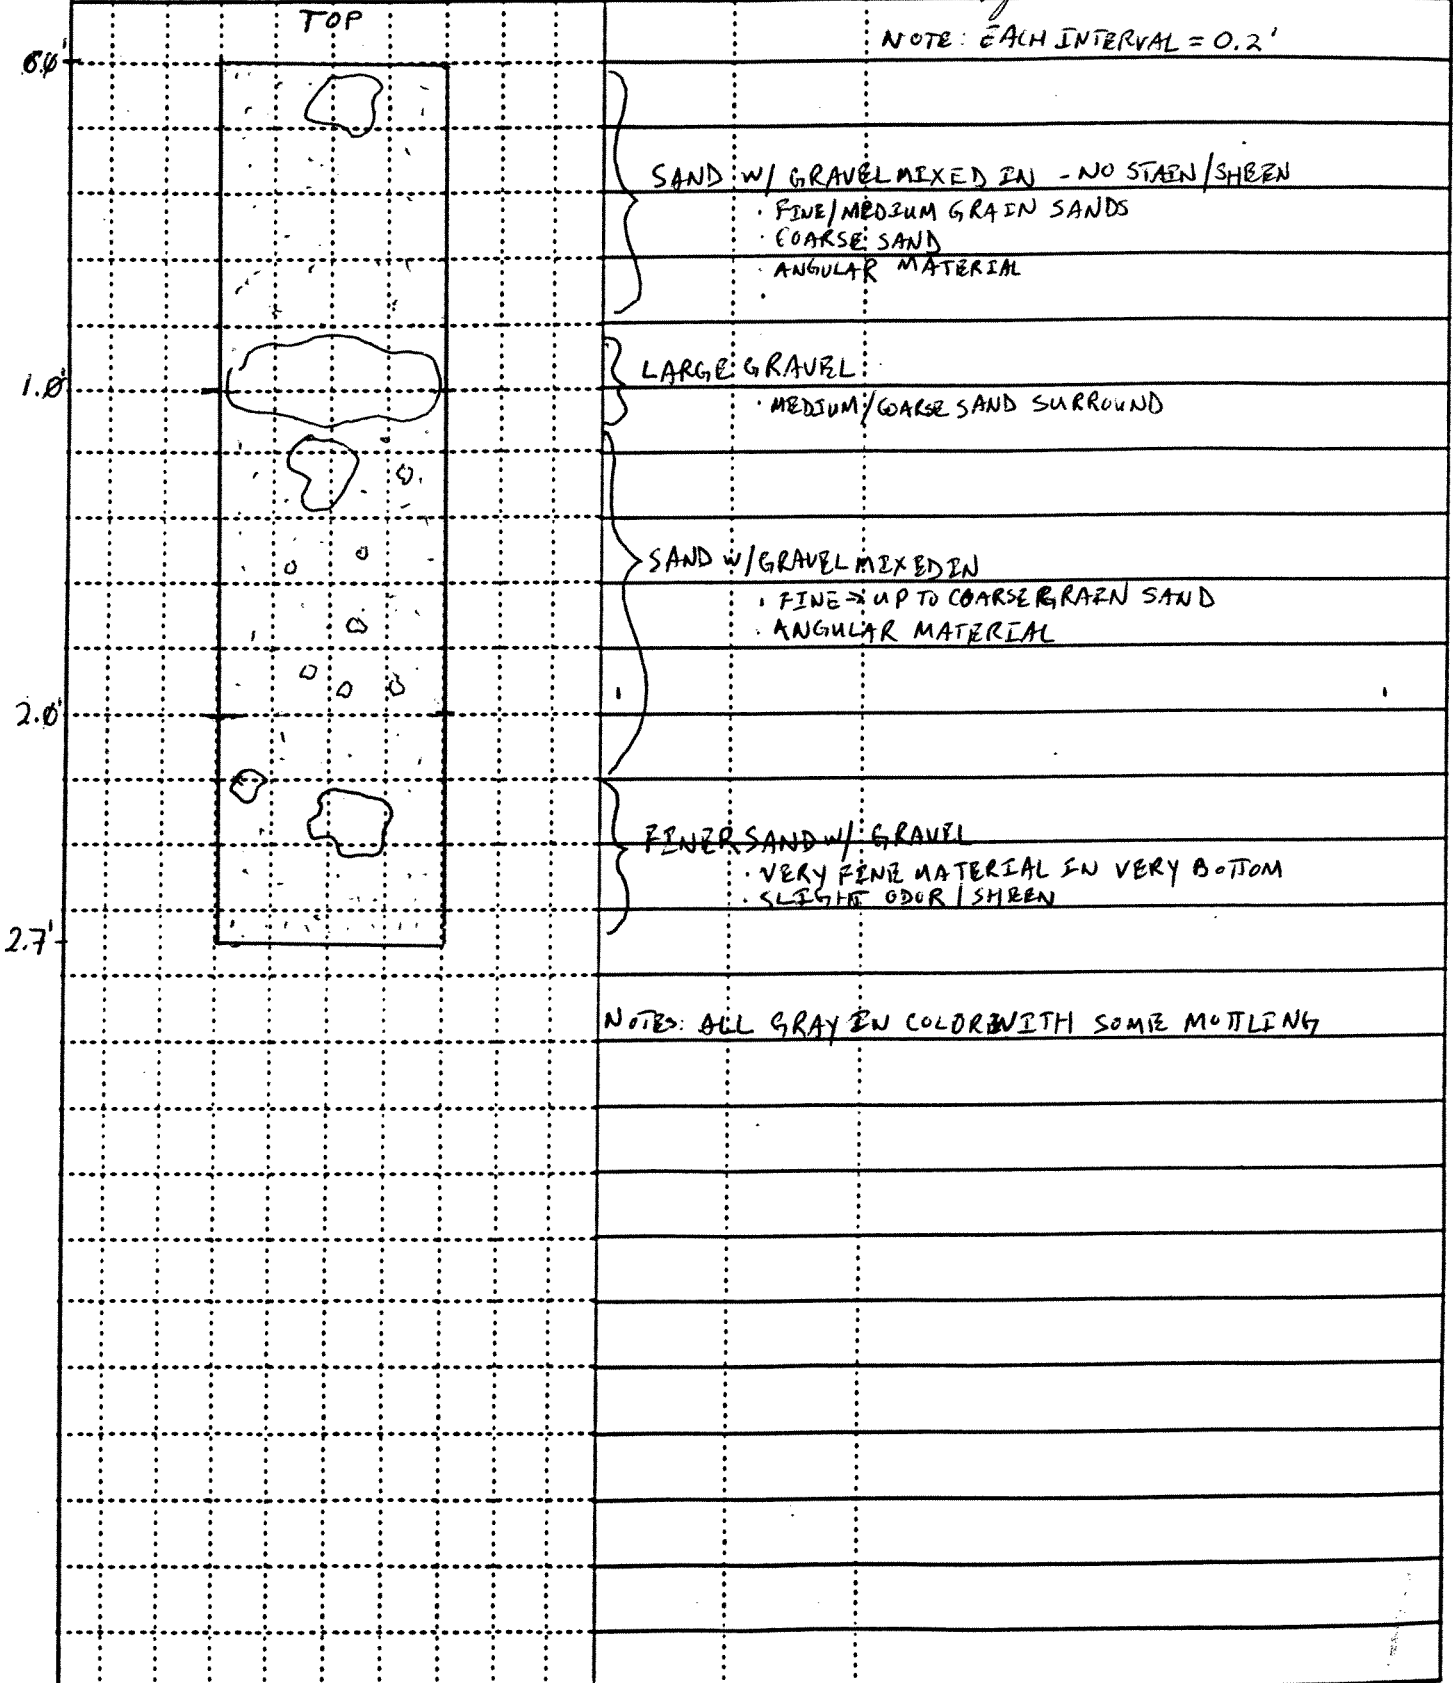 TOP
NOTE: EACH INTERVAL = 0.2'
0.0'
SAND W/ GRAVEL MIXED IN - NO STAIN/SHEEN
· FINE/MEDIUM GRAIN SANDS
· COARSE SAND
· ANGULAR MATERIAL
·
1.0'
LARGE GRAVEL
· MEDIUM/COARSE SAND SURROUND
SAND W/ GRAVEL MIXED IN
· FINE → UP TO COARSE GRAIN SAND
· ANGULAR MATERIAL
2.0'
FINER SAND W/ GRAVEL
· VERY FINE MATERIAL IN VERY BOTTOM
· SLIGHT ODOR/SHEEN
2.7'
NOTES: ALL GRAY IN COLOR WITH SOME MOTTLING